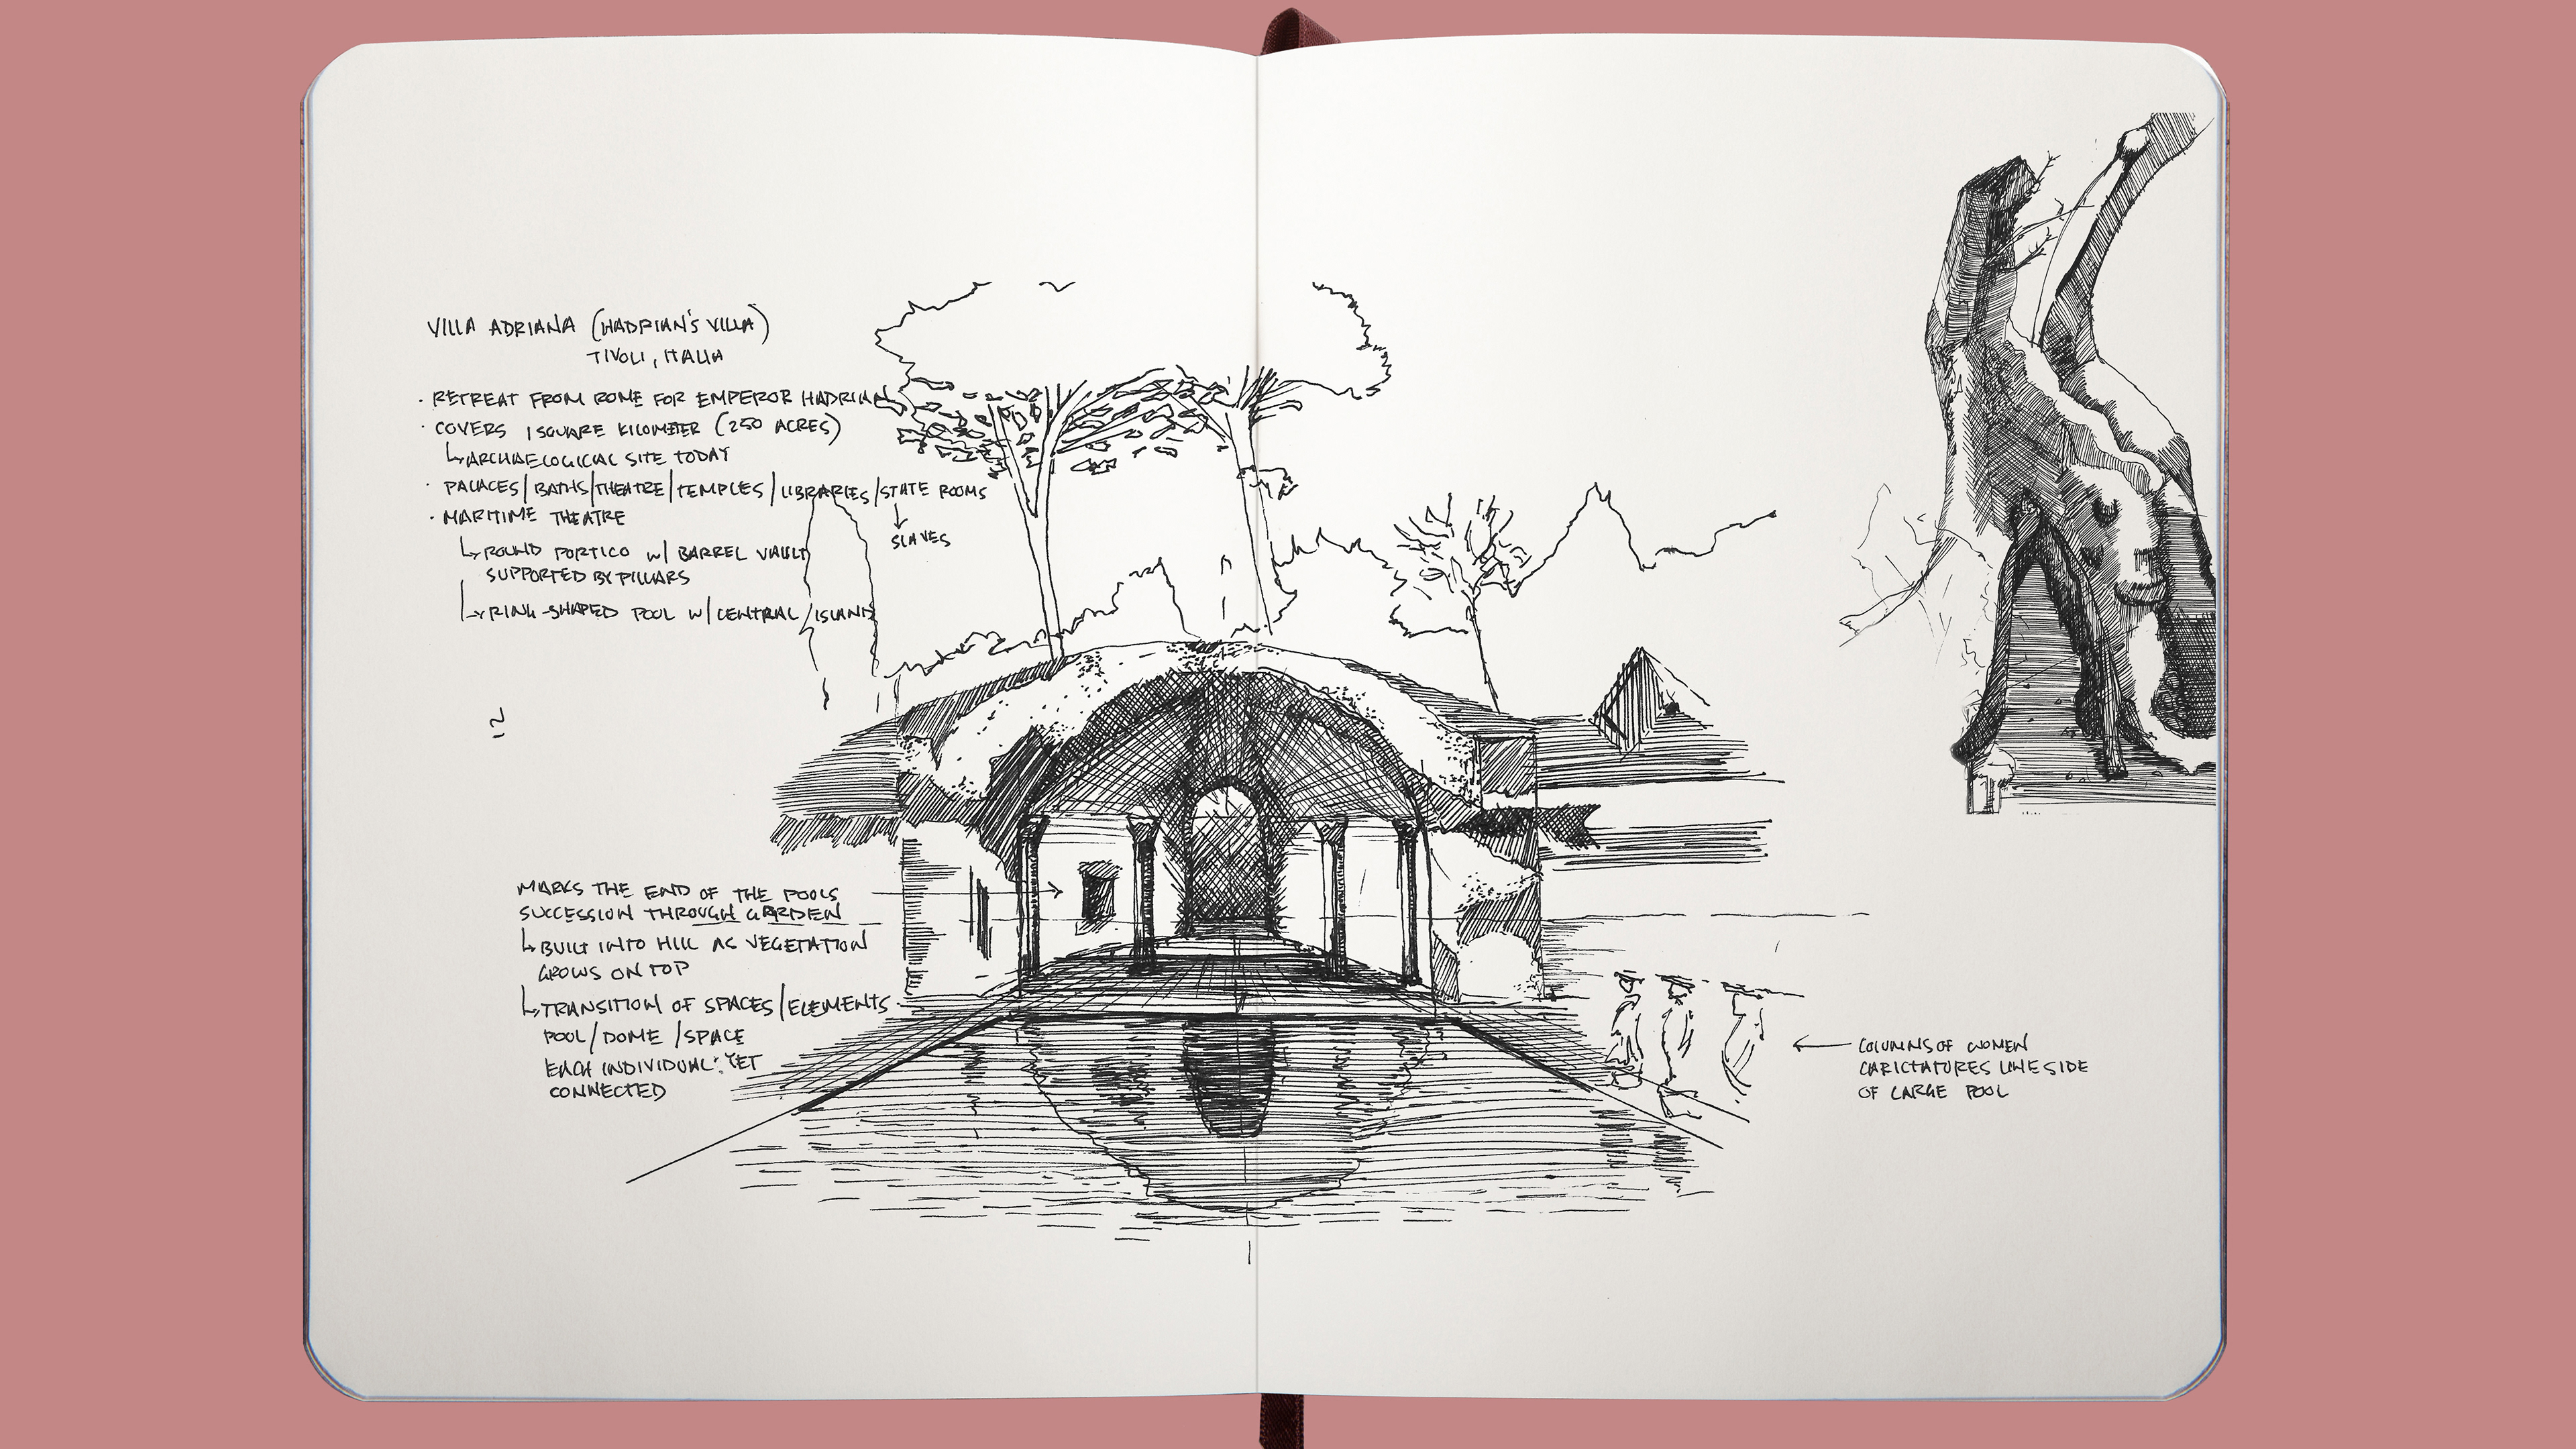 VILLA ADRIANA (HADRIAN'S VILLA)
TIVOLI, ITALIA
· RETREAT FROM ROME FOR EMPEROR HADRIAN
· COVERS 1 SQUARE KILOMETER (250 ACRES)
↳ ARCHAEOLOGICAL SITE TODAY
· PALACES/BATHS/THEATRE/TEMPLES/LIBRARIES/STATE ROOMS
· MARITIME THEATRE
↓
SLAVES
↳ ROUND PORTICO W/ BARREL VAULT
SUPPORTED BY PILLARS
↳ RING-SHAPED POOL W/ CENTRAL ISLAND
MARKS THE END OF THE POOLS
SUCCESSION THROUGH GARDEN
↳ BUILT INTO HILL AS VEGETATION
GROWS ON TOP
↳ TRANSITION OF SPACES/ELEMENTS
POOL/DOME/SPACE
EACH INDIVIDUAL: YET
CONNECTED
← COLUMNS OF WOMEN
CARICTATURES LINE SIDE
OF LARGE POOL